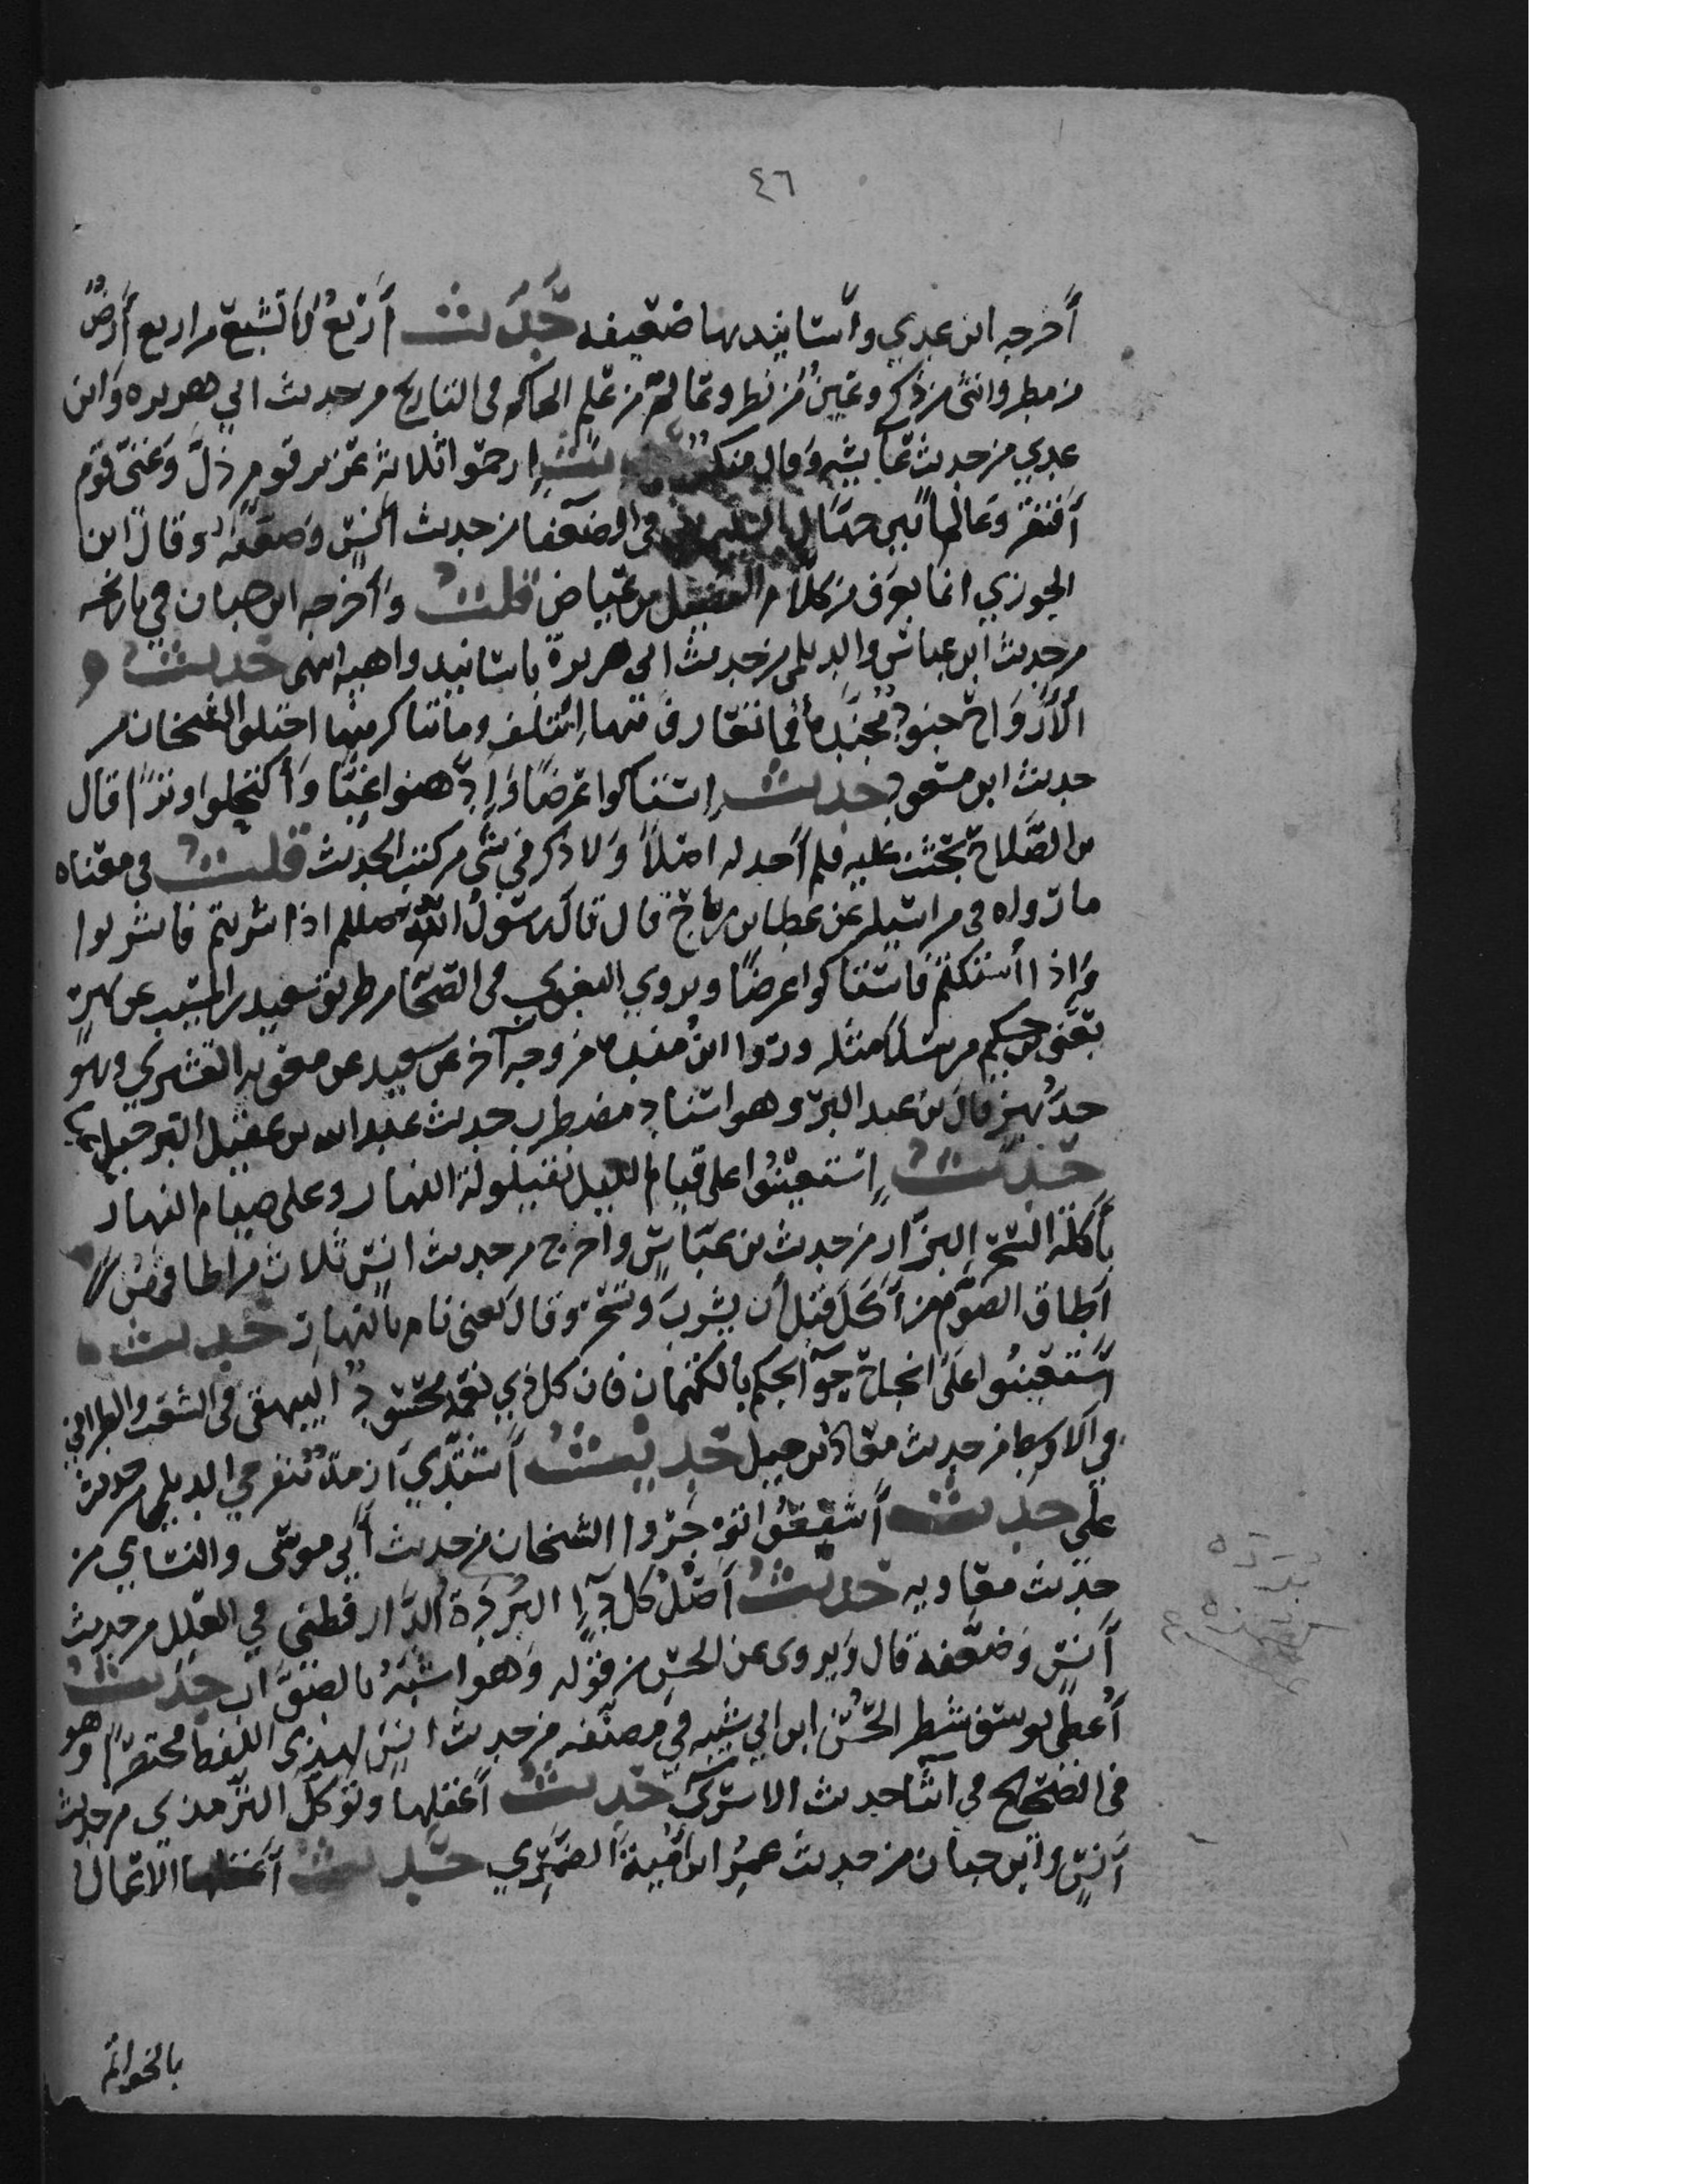 ٤٦
أخرجه ابن عدي وأسانيدها ضعيفه حديث أربع لا تشبع من اربع أرض
من مطر وانثى من ذكر وعين من نظر وعالم من علم الحاكم فى التاريخ من حديث ابي هريره وابن
عدي من حديث عايشه وقال منكر ارحموا ثلاثة عزيز قوم ذل وغنى قوم
أفتقر وعالما بين جهال في الضعفا من حديث أنس وضعفه وقال ابن
الجوزي انما يعرف من كلام الفضيل بن عياض قلت وأخرجه ابن حبان في تاريخه
من حديث ابن عباس والديلمى من حديث ابى هريرة باسانيد واهيه انتهى حديث
الأرواح جنود مجندة فما تعارف منها ائتلف وما تناكر منها اختلف الشيخان من
حديث ابن مسعود حديث استاكوا عرضا وادهنوا غبا وأكتحلوا وترا قال
بن الصلاح بحثت عليه فلم أجد له اصلا ولا ذكر في شى من كتب الحديث قلت في معناه
ما رواه فى مراسيله عن عطا بن رباح قال قال رسول الله صللم اذا شربتم فاشربوا
وإذا أستكتم فاستاكوا عرضا ويروي البغوي فى الصحا من طريق سعيد بن المسيب عن بهز
يعنى حكيم مرسلا مثله وروا ابن منده من وجه آخر عن سعيد عن معويه القشيري وهو
جد بهز قال بن عبد البر وهو اسناد مضطرب حديث عبد الله بن عقيل
حديث إستعينوا على قيام الليل بقيلولة النهار وعلى صيام النهار
بأكلة السحر البزار من حديث بن عباس واخرج من حديث انس ثلاث من اطاقهن
اطاق الصوم من أكل قبل أن يشرب وتسحر وقال يعنى نام بالنهار حديث
استعينوا على انجاح حوآيجكم بالكتمان فان كل ذي نعمة محسود البيهقى فى الشعب والطبراني
في الاوسط من حديث معاذ بن جبل حديث أشتدي أزمة تنفرجي الديلمى من حديث
على حديث أشفعوا تؤجروا الشيخان من حديث أبي موسى والنساي من
حديث معاويه حديث أصل كل دآء البردة الدار قطنى في العلل من حديث
أنس وضعفه قال ويروى عن الحسن من قوله وهو اشبه بالصواب حديث
أعطى يوسف شطر الحسن ابن ابي شيبه في مصنفه من حديث انس بهذى اللفظ مختصرا وهو
فى الصحيح في اثنا حديث الاسرى حديث أعقلها وتوكل الترمذى من حديث
أنس وابن حبان من حديث عمرو ابن أمية الضمري حديث الاعمال
بالخواتم